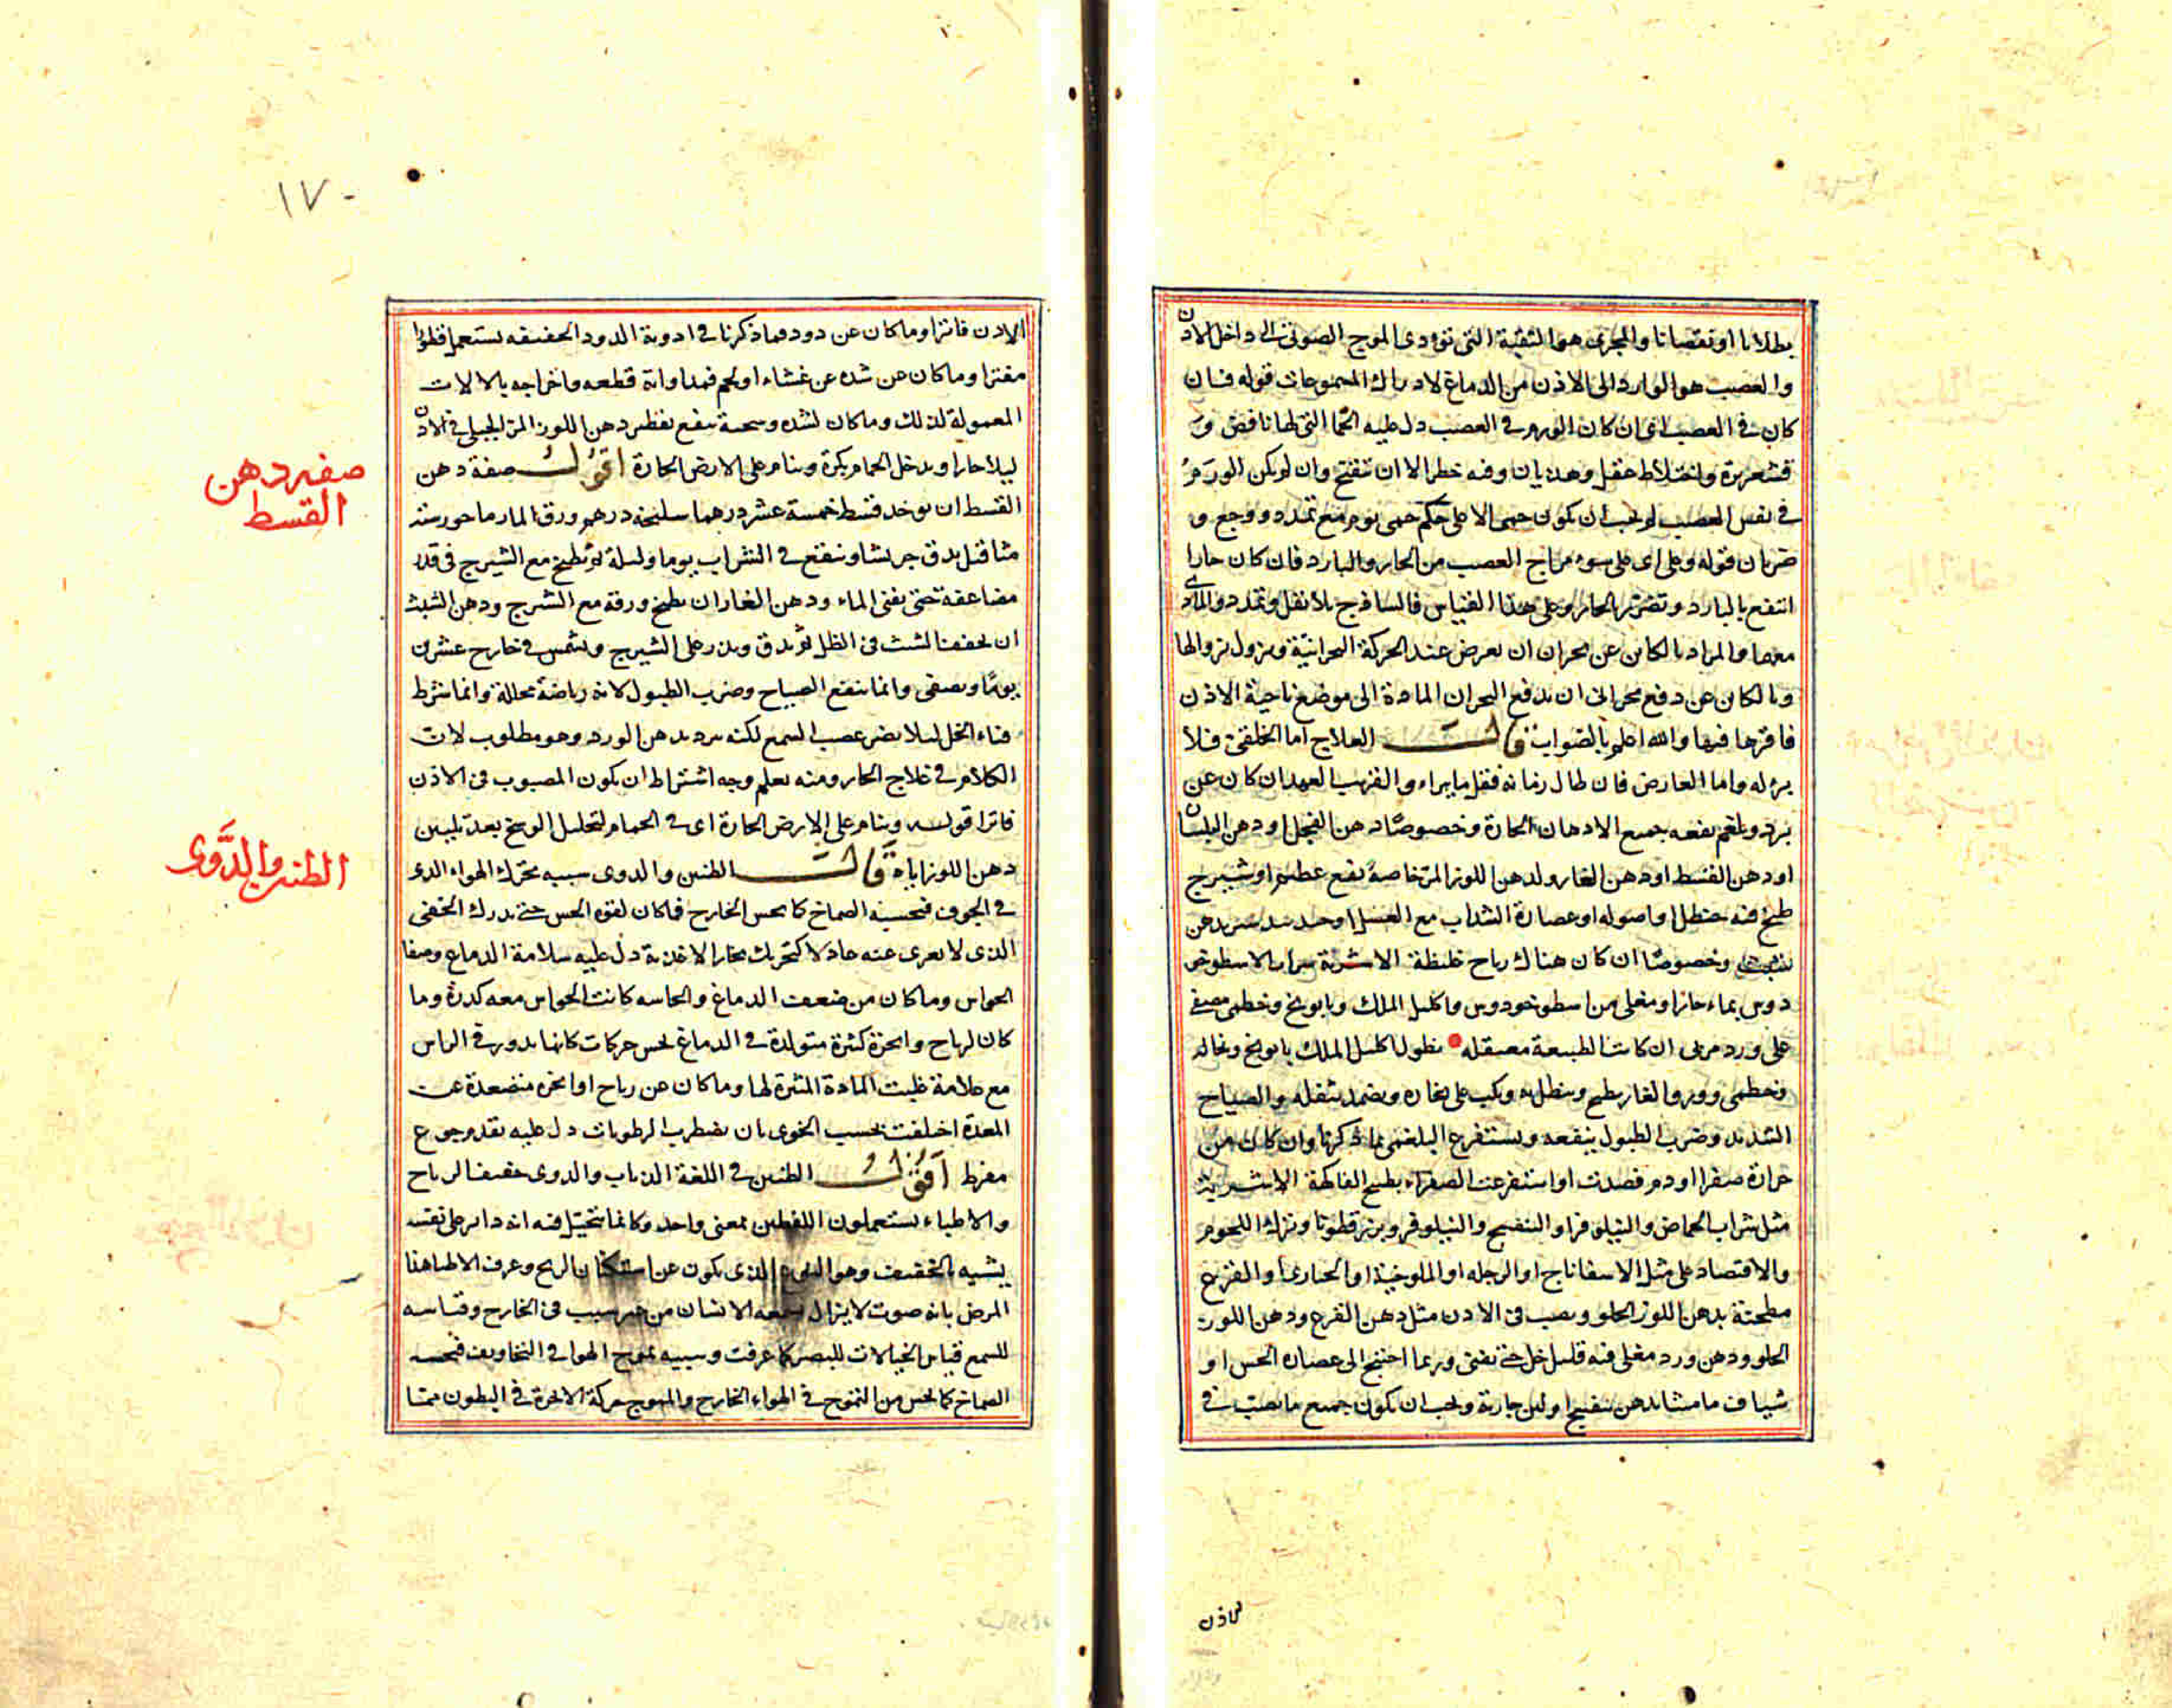 بطلانا او نقصانا والمجرى هو الثقبة التي تؤدي الموج الصوتي الى داخل الاذن
والعصب هو الوارد الى الاذن من الدماغ لادراك المسموعات قوله فان
كان في العصب اي ان كان الورم في العصب دل عليه الحمى التي لها نافض و
قشعريرة واختلاط عقل وهذيان وفيه خطر الا ان تفتح وان لم يكن الورم
في نفس العصب لم يجب ان يكون حمى الا على حكم حمى يوم مع تمدد ووجع و
ضربان قوله وعلى اي على سوء مزاج العصب من الحار والبارد فان كان حارا
انتفع بالبارد وتضرر بالحار وعلى هذا القياس فالساذج بلا ثقل وتمدد والمادي
معهما والمراد بالكائن عن بحران ان يعرض عند الحركة البحرانية ويزول بزوالها
وبالكائن عن دفع بحراني ان يدفع البحران المادة الى موضع ناحية الاذن
فاقرها فيها والله اعلم بالصواب قال العلاج اما الخلقي فلا
برء له واما العارض فان طال زمانه فقل ما يبراء والقريب العهد ان كان عن
برد وبلغم نفعه جميع الادهان الحارة وخصوصا دهن الفجل او دهن البلسان
او دهن القسط او دهن الغار ولدهن اللوز المر خاصة نفع عظيم او شيرج
طبخ فيه حنظل او اصوله او عصارة الشداب مع العسل او
وخصوصا ان كان هناك رياح غليظة الاشربة شراب الاسطوخو
دوس بماء حار او مغلي من اسطوخودوس واكليل الملك وبابونج وخطمي مصفى
على ورد مربى ان كانت الطبيعة معتقلة نطول اكليل الملك بابونج ونخالة
وخطمي وورق الغار يطبخ وينطل به ويكب على بخاره ويضمد بثفله والصياح
الشديد وضرب الطبول ينفعه ويستفرغ البلغم بما ذكرنا وان كان من
حرارة صفرا او دم فصدت او استفرغت الصفراء بطبيخ الفاكهة الاشربة
مثل شراب الحماض والنيلوفر او البنفسج والنيلوفر وبزر قطونا وترك اللحوم
والاقتصاد على مثل الاسفاناج او الرجله او الملوخية او الخبازى او القرع
مطجنة بدهن اللوز الحلو ويصب في الاذن مثل دهن القرع ودهن اللوز
الحلو ودهن ورد مغلي فيه قليل خل حتى يفنى وربما احتيج الى عصارة الخس او
شياف ماميثا بدهن بنفسج او لبن جارية ويجب ان يكون جميع ما يصب في
كاذن
١٧٠
الاذن فاترا وما كان عن دود فما ذكرنا في ادوية الدود الخفيفه يستعمل قطورا
مفترا وما كان عن سده عن غشاء او لحم فمداواته قطعه واخراجه بالالات
المعمولة لذلك وما كان لسده وسخية ينفع تقطير دهن اللوز المر الجبلي في الاذن
ليلا حارا ويدخل الحمام بكرة وينام على الارض الحارة اقول صفة دهن
القسط ان يوخذ قسط خمسة عشر درهما سليخة درهم ورق المارماحور ستة
مثاقيل يدق جريشا وينقع في الشراب يوما وليلة ثم يطبخ مع الشيرج في قدر
مضاعفة حتى يفنى الماء ودهن الغار ان يطبخ ورقه مع الشيرج ودهن الشبث
ان يجفف الشبث في الظل ثم يدق ويذر على الشيرج ويشمس في خارج عشرين
يوما ويصفى وانما ينفع الصياح وضرب الطبول لانه رياضة محللة وانما شرط
فناء الخل لئلا يضر عصب السمع لكنه يرد بدهن الورد وهو مطلوب لان
الكلام في علاج الحار ومنه يعلم وجه اشتراط ان يكون المصبوب في الاذن
فاترا قوله وينام على الارض الحارة اي في الحمام لتحليل الوسخ بعد تليين
دهن اللوز اياه قال الطنين والدوي سببه تحرك الهواء الذي
في الجوف فيحسه الصماخ كما يحس الخارج فما كان لقوة الحس حتى يدرك الخفي
الذي لا يعرى عنه عادلا كتحريك بخار الاغذية دل عليه سلامة الدماغ وصفا
الحواس وما كان من ضعف الدماغ والحاسه كانت الحواس معه كدرة وما
كان لرياح وابخرة كثيرة متولدة في الدماغ يحس حركات كانها يدور في الراس
مع علامة غلبت المادة المثيرة لها وما كان عن رياح او ابخرة متصعدة عن
المعدة اختلفت بحسب الخوى بان يضطرب الرطوبات دل عليه تقدم جوع
مفرط اقول الطنين في اللغة الذباب والدوي حفيف الرياح
والاطباء يستعملون اللفظين بمعنى واحد وكانما يتخيل فيه انه دائر على نفسه
يشبه بالخفيف وهو النوع الذي يكون عن استكنان الريح وعرف الاطبا هذا
المرض بانه صوت لا يزال يسمعه الانسان من غير سبب في الخارج وقياسه
للسمع قياس الخيالات للبصر كما عرفت وسببه تموج الهوا في التجاويف فيحسه
الصماخ كما يحس من التموج في الهواء الخارج والمموج حركة الابخرة في البطون مما
صفة دهن
القسط
الطنين والدَّوى